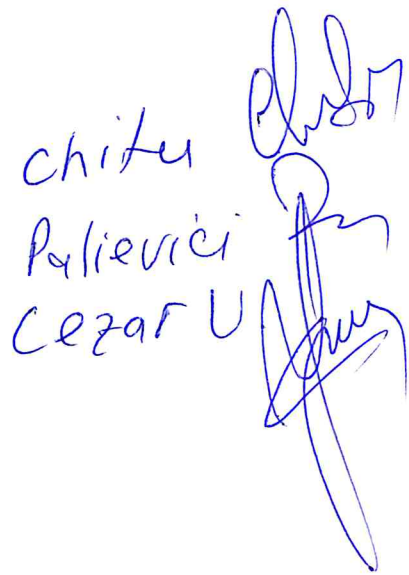 Chitu
Palievici
Cezar U